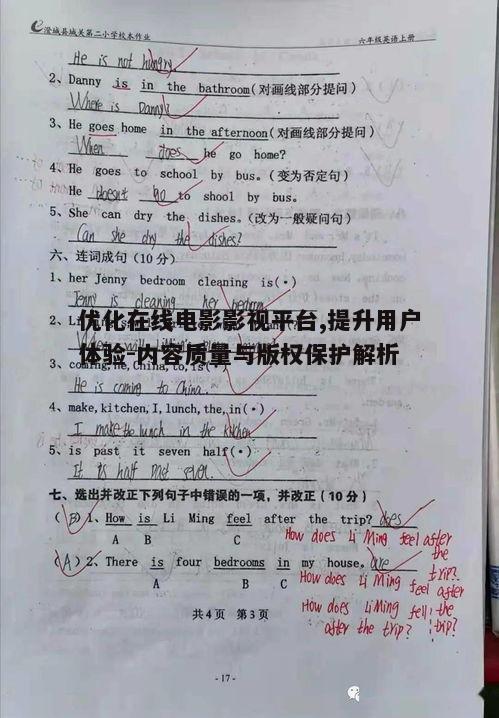 澄城县城关第二小学校本作业 六年级英语上册
He is not hungry
2、Danny is in the bathroom(对画线部分提问)
Where is Danny?
3、He goes home in the afternoon(对画线部分提问)
When does he go home?
4、He goes to school by bus。(变为否定句)
He doesn't go to shool by bus.
5、She can dry the dishes。(改为一般疑问句)
Can she dry the dishes?
六、连词成句(10分)
1、her Jenny bedroom cleaning is(•)
Jenny is cleaning her bedroom
优化在线电影影视平台,提升用户
体验-内容质量与版权保护解析
3、coming,he,China,to,is(
He is coming to China.
4、make,kitchen,I,lunch,the,in(•)
I make the lunch in the kitchen
5、is past it seven half(•)
It is half past seven.
七、选出并改正下列句子中错误的一项,并改正(10分)
(B)1、How is Li Ming feel after the trip? does
A B C
How does Li Ming feel after
the
trip?
(A)2、There is four bedrooms in my house。are
A B C
How does Li Ming feel after
the
How does Li Ming fell
after the trip?
trip?
共4页 第3页
- 17 -